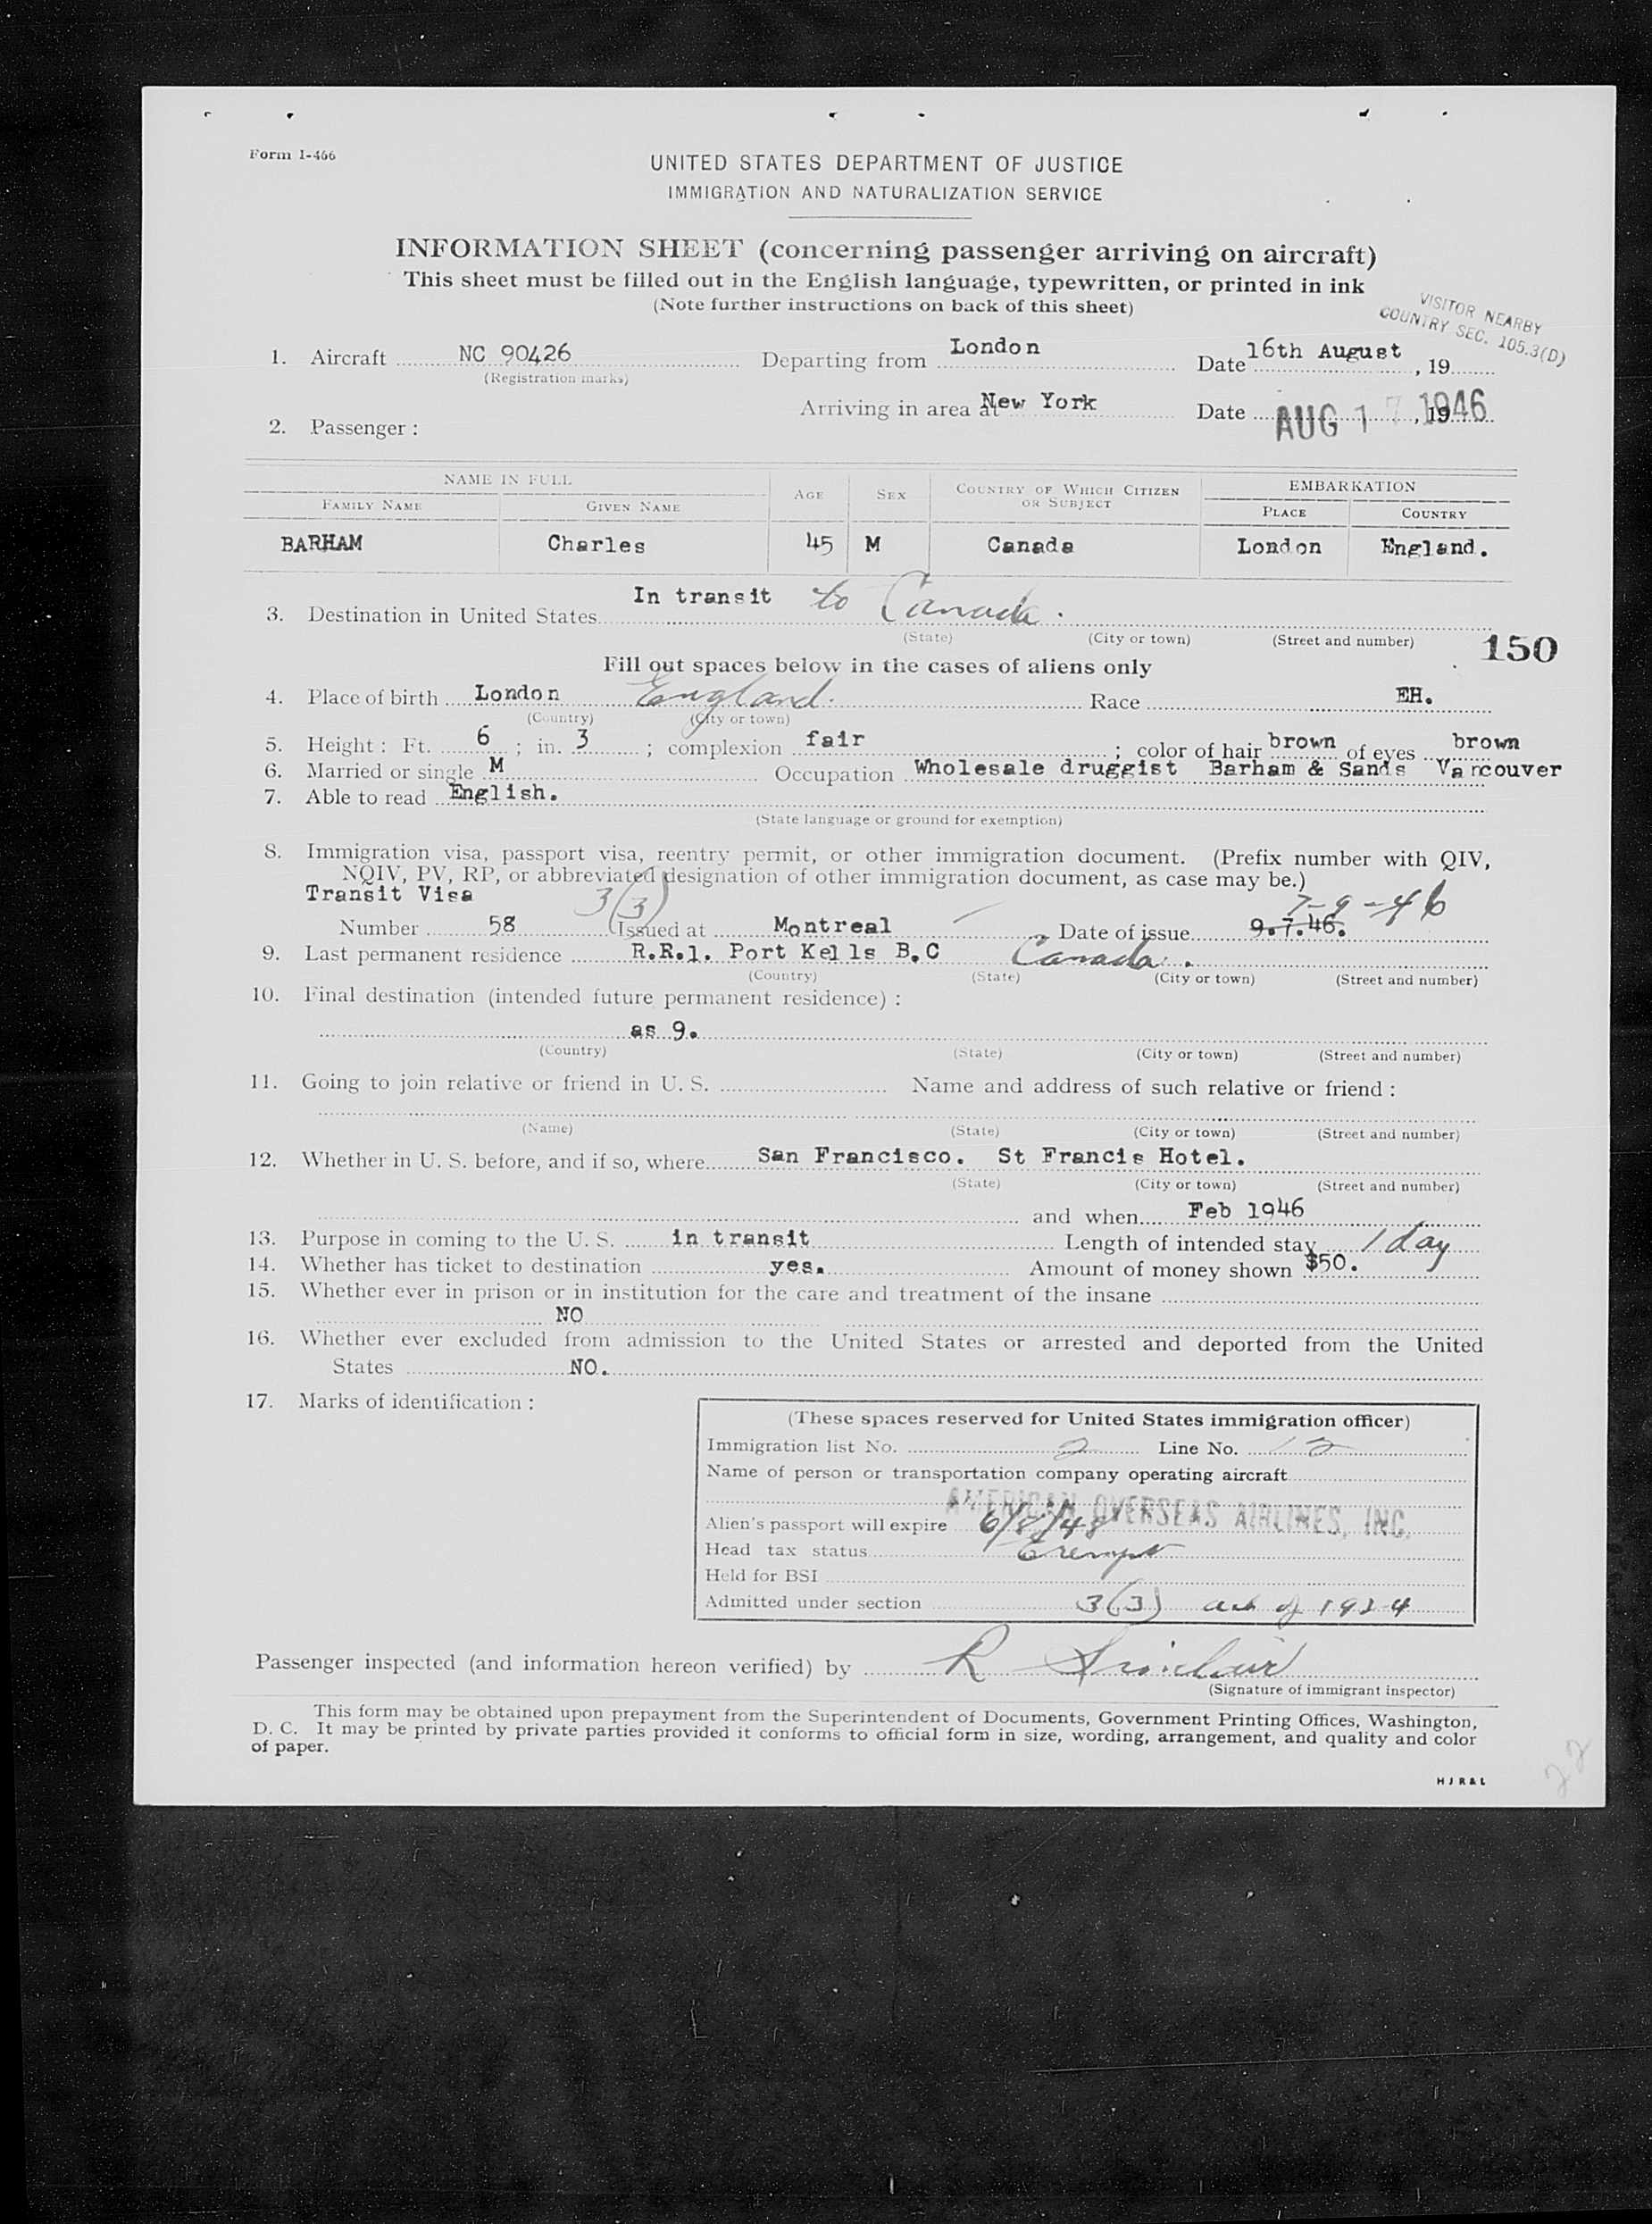 Form I-466
UNITED STATES DEPARTMENT OF JUSTICE
IMMIGRATION AND NATURALIZATION SERVICE
INFORMATION SHEET (concerning passenger arriving on aircraft)
This sheet must be filled out in the English language, typewritten, or printed in ink
(Note further instructions on back of this sheet)
VISITOR NEARBY
COUNTRY SEC. 105.3(D)
1. Aircraft NC 90426 Departing from London Date 16th August, 19
(Registration marks)
Arriving in area at New York Date AUG 17, 1946
2. Passenger:
NAME IN FULL AGE SEX COUNTRY OF WHICH CITIZEN OR SUBJECT EMBARKATION
FAMILY NAME GIVEN NAME PLACE COUNTRY
BARHAM Charles 45 M Canada London England.
3. Destination in United States In transit to Canada.
(State) (City or town) (Street and number)
150
Fill out spaces below in the cases of aliens only
4. Place of birth London England. Race EH.
(Country) (City or town)
5. Height: Ft. 6; in. 3; complexion fair; color of hair brown of eyes brown
6. Married or single M Occupation Wholesale druggist Barham & Sands Vancouver
7. Able to read English.
(State language or ground for exemption)
8. Immigration visa, passport visa, reentry permit, or other immigration document. (Prefix number with QIV,
NQIV, PV, RP, or abbreviated designation of other immigration document, as case may be.)
Transit Visa 3(3) 7-9-46
Number 58 Issued at Montreal Date of issue 9.7.46.
9. Last permanent residence R.R.1. Port Kells B.C Canada.
(Country) (State) (City or town) (Street and number)
10. Final destination (intended future permanent residence):
as 9.
(Country) (State) (City or town) (Street and number)
11. Going to join relative or friend in U. S. Name and address of such relative or friend:
(Name) (State) (City or town) (Street and number)
12. Whether in U. S. before, and if so, where San Francisco. St Francis Hotel.
(State) (City or town) (Street and number)
and when Feb 1946
13. Purpose in coming to the U. S. in transit Length of intended stay 1 day
14. Whether has ticket to destination yes. Amount of money shown $50.
15. Whether ever in prison or in institution for the care and treatment of the insane
NO
16. Whether ever excluded from admission to the United States or arrested and deported from the United
States NO.
17. Marks of identification:
(These spaces reserved for United States immigration officer)
Immigration list No. 2 Line No. 12
Name of person or transportation company operating aircraft
AMERICAN OVERSEAS AIRLINES, INC.
Alien's passport will expire 6/8/48
Head tax status Exempt
Held for BSI
Admitted under section 3(3) act of 1924
Passenger inspected (and information hereon verified) by R
(Signature of immigrant inspector)
This form may be obtained upon prepayment from the Superintendent of Documents, Government Printing Offices, Washington,
D. C. It may be printed by private parties provided it conforms to official form in size, wording, arrangement, and quality and color
of paper.
HJR&L
22